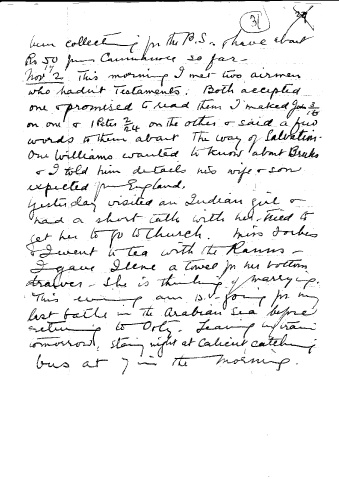 31
been collecting for the B.S. & have about
Rs 50/- from Cannanore so far -
Nov 2 This morning I met two airmen
who hadn't Testaments. Both accepted
one & promised to read them I marked John 3/16
on one & 1 Peter 2/24 on the other & said a few
words to them about The way of Salvation.
One Williams wanted to know about
& I told him details his wife & son
expected from England.
Yesterday visited an Indian girl &
had a short talk with her. tried to
get her to go to Church. Miss Forbes
& I went to tea with the -
I gave Ilene a towel for her bottom
drawer - she is thinking of marrying.
This evening am D.V. going for my
last bathe in the Arabian Sea before
returning to Ooty. Leaving by train
tomorrow, staying night at Calicut catching
bus at 7 in the morning.